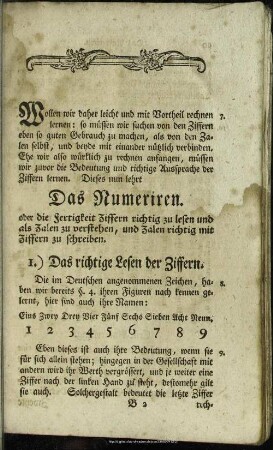 Wollen wir daher leicht und mit Vortheil rechnen 7.
lernen: so müssen wir suchen von den Ziffern
eben so guten Gebrauch zu machen, als von den Za-
len selbst, und beyde mit einander nützlich verbinden.
Ehe wir also würklich zu rechnen anfangen, müssen
wir zuvor die Bedeutung und richtige Aussprache der
Ziffern lernen. Dieses nun lehrt
Das Numeriren.
oder die Fertigkeit Ziffern richtig zu lesen und
als Zalen zu verstehen, und Zalen richtig mit
Ziffern zu schreiben.
1.) Das richtige Lesen der Ziffern.
Die im Deutschen angenommenen Zeichen, ha- 8.
ben wir bereits §. 4. ihren Figuren nach kennen ge-
lernt, hier sind auch ihre Namen:
Eins Zwey Drey Vier Fünf Sechs Sieben Acht Neun,
1 2 3 4 5 6 7 8 9
Eben dieses ist auch ihre Bedeutung, wenn sie 9.
für sich allein stehen; hingegen in der Gesellschaft mit
andern wird ihr Werth vergrössert, und je weiter eine
Ziffer nach der linken Hand zu steht, destomehr gilt
sie auch. Solchergestalt bedeutet die letzte Ziffer
B 2 rech-